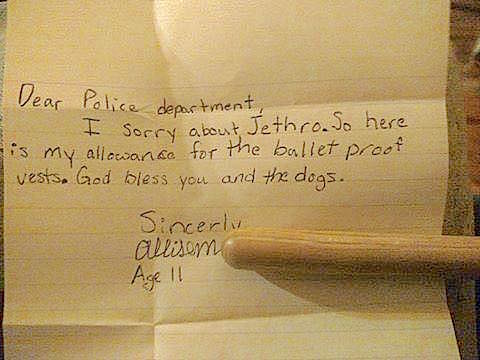 Dear Police department,
I sorry about Jethro. So here
is my allowanse for the ballet proof
vests. God bless you and the dogs.
Sincerly
Allison
Age 11